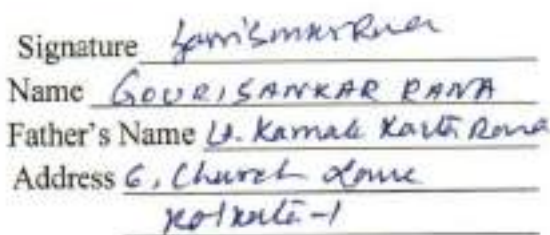 Signature Gourisankar Rana
Name GOURISANKAR RANA
Father's Name Lt. Kamala Kanta Rana
Address 6, Church Lane
Kolkata-1